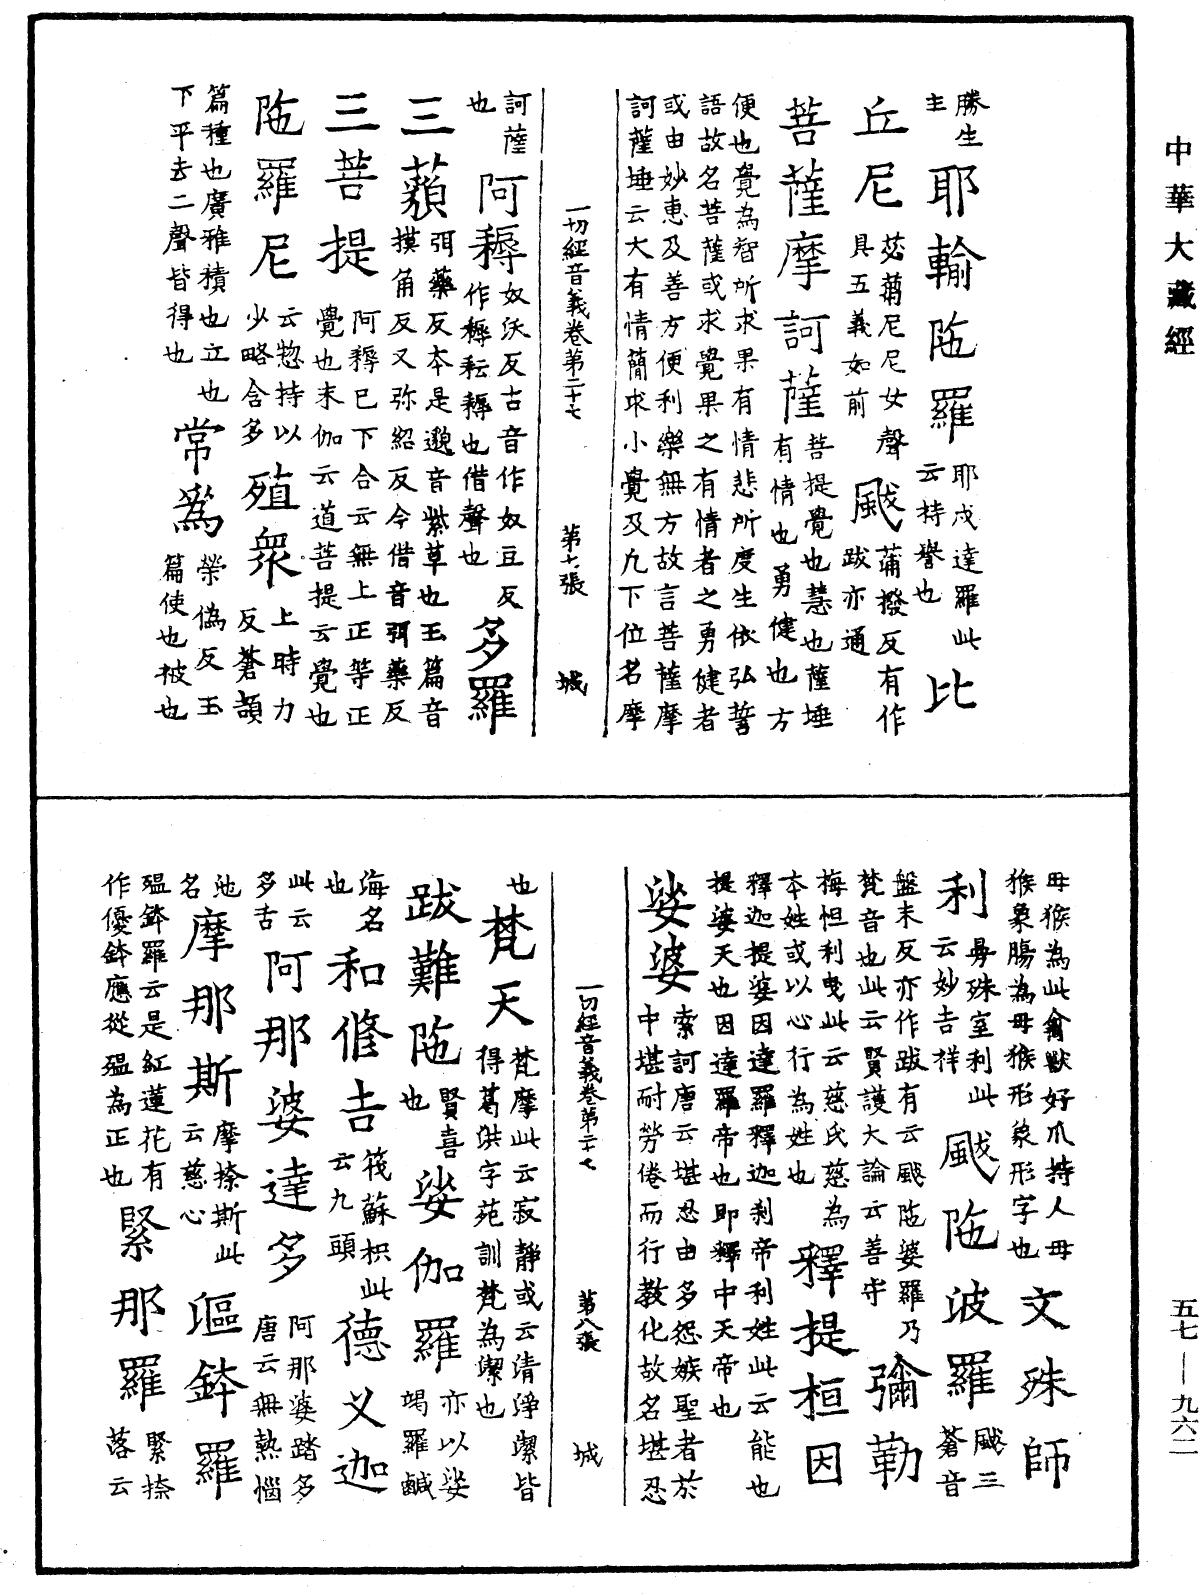 中華大藏經
勝生主 耶輸陁羅 耶戍達羅此云持譽也 比
丘尼 苾蒭尼尼女聲具五義如前 颰 蒲撥反有作跋亦通
菩薩摩訶薩 菩提覺也慧也薩埵有情也勇健也方
便也覺為智所求果有情悲所度生依弘誓
語故名菩薩或求覺果之有情者之勇健者
或由妙惠及善方便利樂無方故言菩薩摩
訶薩埵云大有情簡求小覺及九下位名摩
一切經音義卷第二十七 第七張 城
訶薩也 阿耨 奴沃反古音作奴豆反作耨耘耨也借聲也 多羅
三藐 弭藥反本是邈音紫草也玉篇音摸角反又弥紹反今借音弭藥反
三菩提 阿耨已下合云無上正等正覺也末伽云道菩提云覺也
陁羅尼 云惣持以少略含多 殖衆 上時力反蒼頡
篇種也廣雅積也立也下平去二聲皆得也 常為 榮偽反玉篇使也被也
母猴為此禽獸好爪持人母
猴象腸為母猴形象形字也 文殊師
利 曼殊室利此云妙吉祥 颰陁波羅 颰三蒼音
盤末反亦作跋有云颰陁婆羅乃梵音也此云賢護大論云善守 彌勒
梅怛利曳此云慈氏慈為本姓或以心行為姓也 釋提桓因
釋迦提婆因達羅釋迦刹帝利姓此云能也
提婆天也因達羅帝也即釋中天帝也
娑婆 索訶唐云堪忍由多怨嫉聖者於中堪耐勞倦而行教化故名堪忍
一切經音義卷第二十七 第八張 城
也 梵天 梵摩此云寂靜或云清淨潔皆得葛洪字苑訓梵為潔也
跋難陁 賢喜也 娑伽羅 亦以娑竭羅鹹
海名也 和修吉 筏蘇枳此云九頭 德叉迦
此云多舌 阿那婆達多 阿那婆踏多唐云無熱惱
池名 摩那斯 摩捺斯此云慈心 漚鉢羅
殟鉢羅云是紅蓮花有作優鉢應從殟為正也 緊那羅 緊捺落云
五七—九六二